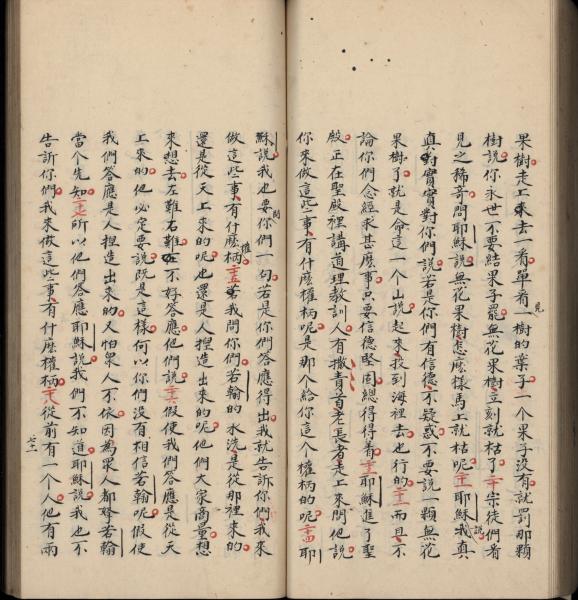 果樹走上來去一看單看見一樹的葉子一个果子沒有就罰那顆
樹說你永世不要結果子罷無花果樹立刻就枯了二十宗徒們看
見之稀奇問耶穌說無花果樹怎麼樣馬上就枯呢二十一耶穌說我真
真實實對你們說若是你們有信德不疑惑不要說一顆無花
果樹了就是命這一个山說起來投到海裡去也行的二十二而且不
論你們念經求甚麼事只要信德堅固總得得着二十三耶穌進了聖
殿正在聖殿裡講道理教訓人有撒責首老長者走上來問他說
你來做這些事有什麼權柄呢是那个給你這个權柄的呢二十四耶
穌說我也要問你們一句若是你們答應得出我就告訴你們我來
做這些事有什麼權柄二十五我問你們若翰的水洗是從那裡來的
還是從天上來的呢也還是人揑造出來的呢他們大家商量想
來想去左難右難不好答應他們說二十六假使我們答應是從天
上來的他必定要說既是這樣何以你們沒有相信若翰呢假使
我們答應是人揑造出來的又怕衆人不依因為衆人都孥若翰
當个先知二十七所以他們答應耶穌說我們不知道耶穌說我也不
告訴你們我來做這些事有什麼權柄二十八從前有一个人他有兩